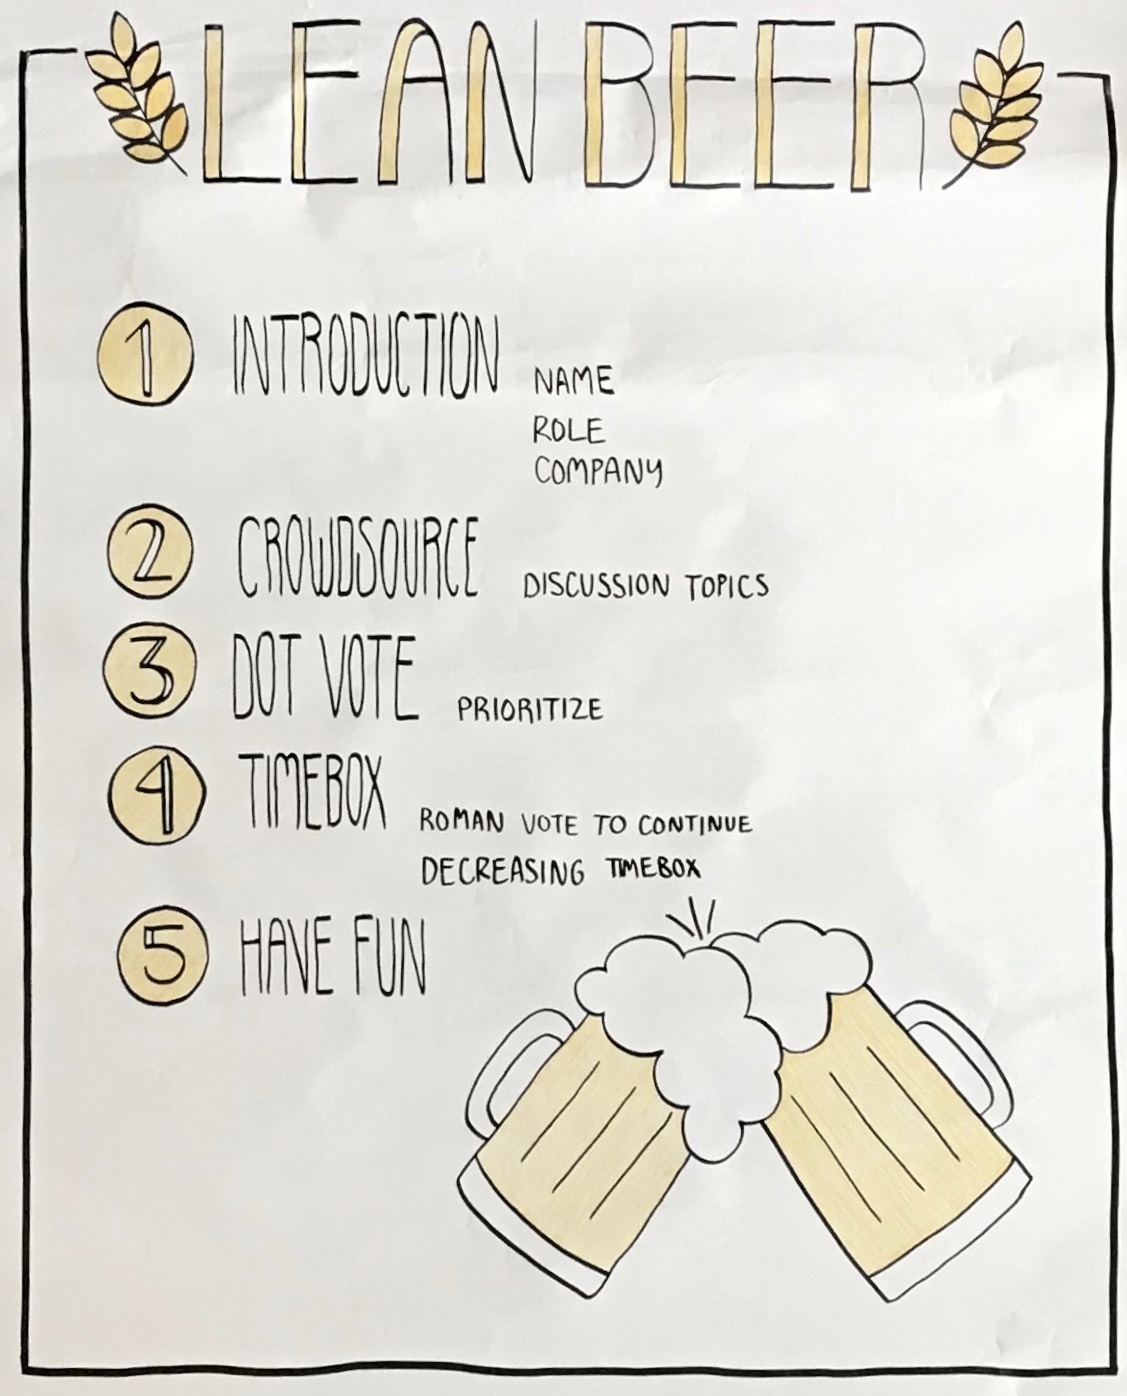 LEAN BEER
1 INTRODUCTION NAME
ROLE
COMPANY
2 CROWDSOURCE DISCUSSION TOPICS
3 DOT VOTE PRIORITIZE
4 TIMEBOX ROMAN VOTE TO CONTINUE
DECREASING TIMEBOX
5 HAVE FUN